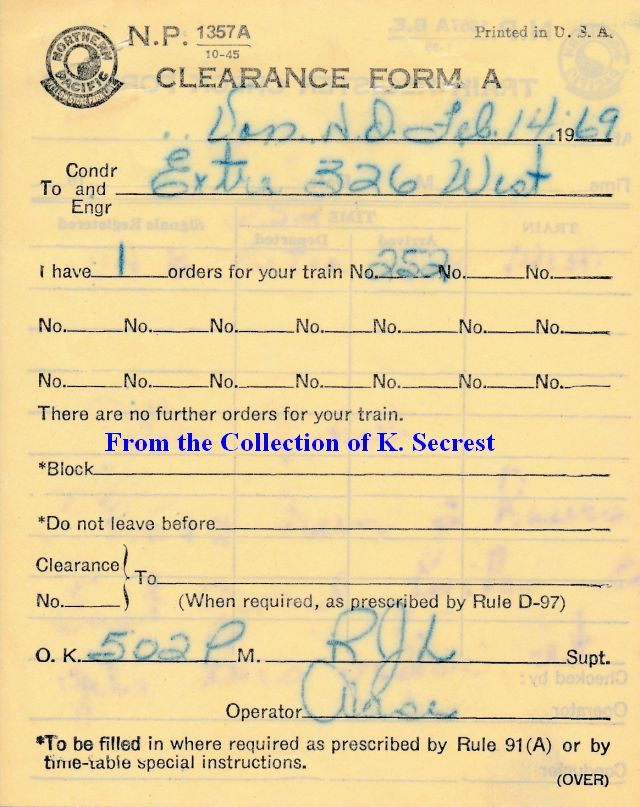 NORTHERN PACIFIC
YELLOWSTONE PARK LINE
N.P. 1357A
10-45
Printed in U. S. A.
CLEARANCE FORM A
N.D. Feb. 14, 1969
To Condr and Engr Extra 326 West
I have 1 orders for your train No. 252 No. No.
No. No. No. No. No. No. No.
No. No. No. No. No. No. No.
There are no further orders for your train.
From the Collection of K. Secrest
*Block
*Do not leave before
Clearance
No. } To
(When required, as prescribed by Rule D-97)
O. K. 502 P M. RJL Supt.
Operator
*To be filled in where required as prescribed by Rule 91(A) or by
time-table special instructions.
(OVER)